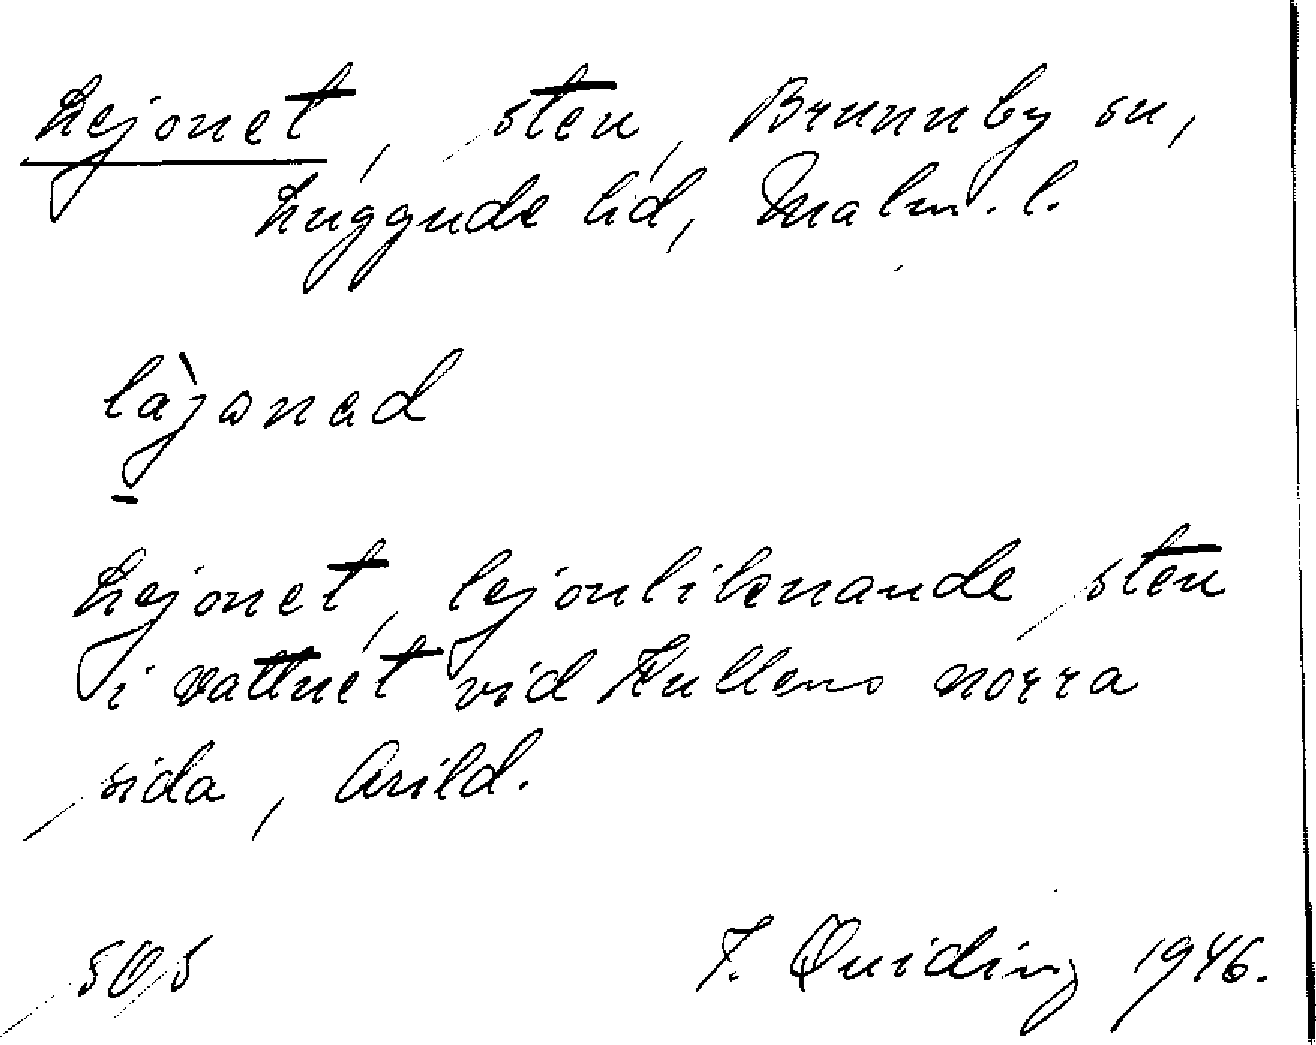 Lejonet, sten, Brunnby sn,
Luggude hd, Malm. l.
làjonad
Lejonet, lejonliknande sten
i vattnet vid Kullens norra
sida, Arild.
505
F. Quiding 1946.